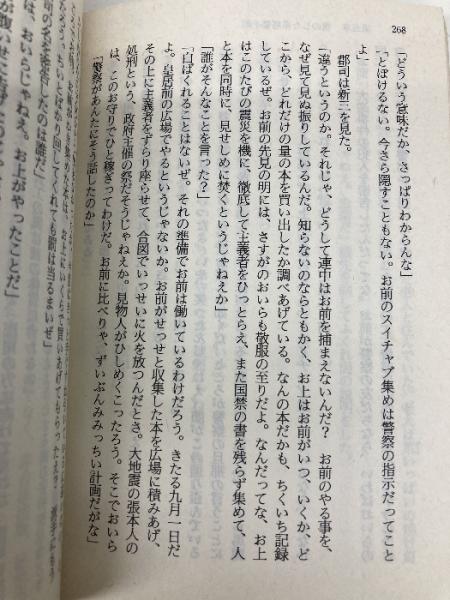 268
「どういう意味だか、さっぱりわからんな」
「とぼけるない。今さら隠すこともない。お前のスイチャブ集めは警察の指示だってこと
よ」
郡司は新二を見た。
「違うというのか。それじゃ、どうして連中はお前を捕まえないんだ？　お前のやる事を、
なぜ見て見ぬ振りしているんだ。知らないのならともかく、お上はお前がいつ、いくか、ど
こから、どれだけの量の本を買い出したか調べあげている。なんの本だかも、ちくいち記録
しているぜ。お前の先見の明には、さすがのおいらも敬服の至りだよ。なんだってな、お上
はこのたびの震災を機に、徹底して主義者をひっとらえ、また国禁の書を残らず集めて、人
と本を同時に、見せしめに焚くというじゃねえか」
「誰がそんなことを言った？」
「白ばくれることはないぜ。それの準備でお前は働いているわけだろう。きたる九月一日だ
よ。皇居前の広場でやるというじゃないか。お前がせっせと収集した本を広場に積みあげ、
その上に主義者をずらり座らせて、合図でいっせいに火を放つんだとさ。大地震の張本人の
処刑という、政府主催の祭だそうじゃねえか。見物人がひしめくこったろう。そこでおいら
は、このお守りでひと稼ぎってわけだ。お前に比べりゃ、ずいぶんみみっちい計画だがな」
「警察があんたにそう話したのか」